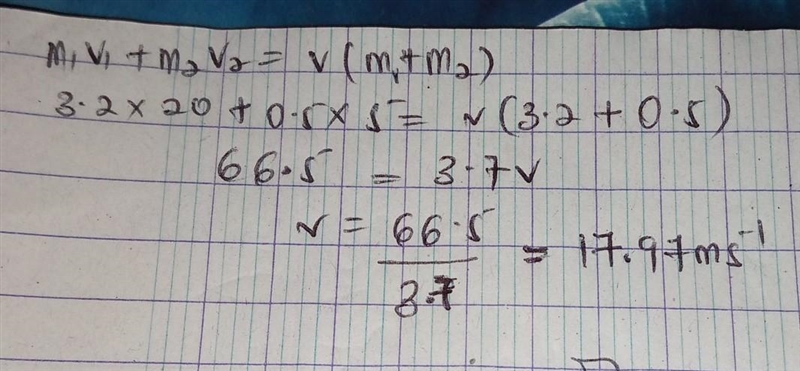 m₁v₁ + m₂v₂ = v(m₁+m₂)
3.2 × 20 + 0.5 × 5 = v(3.2 + 0.5)
66.5 = 3.7v
v = 66.5/3.7 = 17.97ms⁻¹